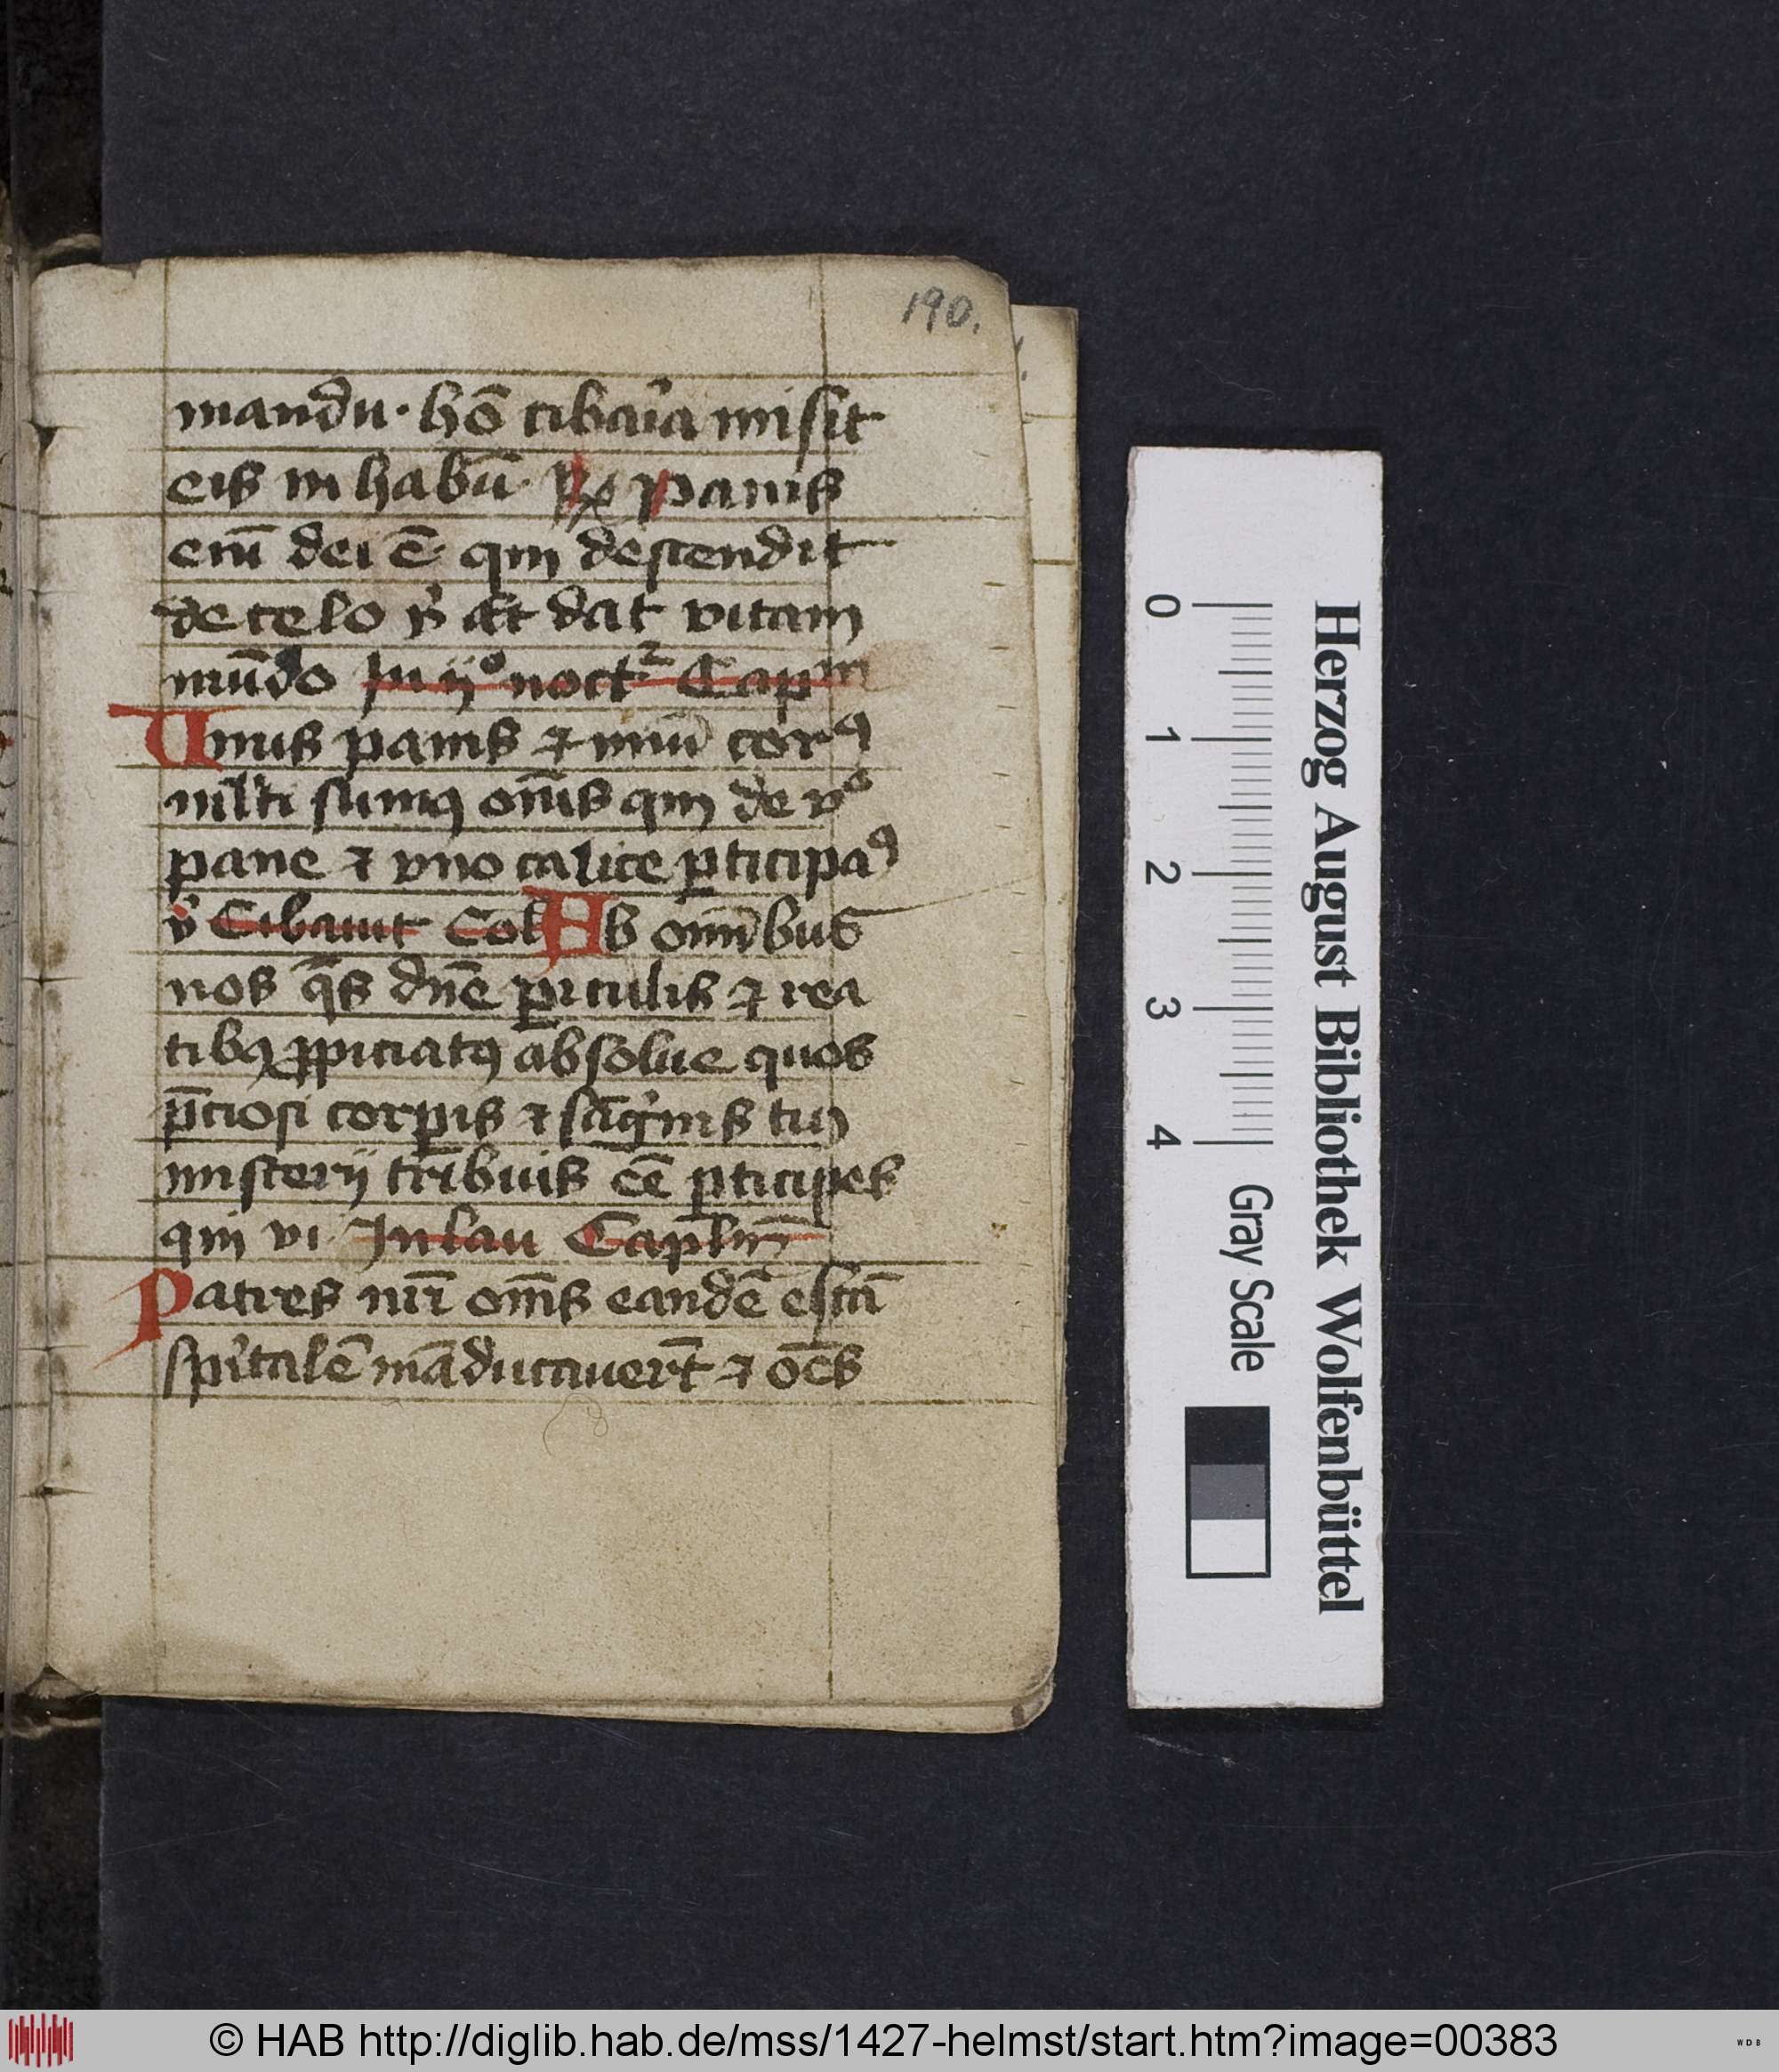 190.
mandu. hō cibaͥa misit
eis in habū. Rx Panis
enī dei ē qui descendit
de celo v̾ Et dat vitam
mūdo In ijº noctᷣ Capᵐ
Unus panis ⁊ mltī corꝰ
mlti sumꝰ om̄s qui de vº
pane ⁊ vno calice ꝑticipaꝰ
v̾ Cibauit Col Ab omībus
nos q̄s dn̄e ꝑiculis ⁊ rea
tibꝰ ꝓpiciatꝰ absolue quos
p̄ciosi corꝑis ⁊ sāgͥnis tui
misterij tribuis eē ꝑticipes
qui vi In lau Capl̄m
Patres nr̄i om̄s eandē escā
spͥitalē māducauer̄t ⁊ oēs
Herzog August Bibliothek Wolfenbüttel
0 1 2 3 4 Gray Scale
© HAB http://diglib.hab.de/mss/1427-helmst/start.htm?image=00383
WDB